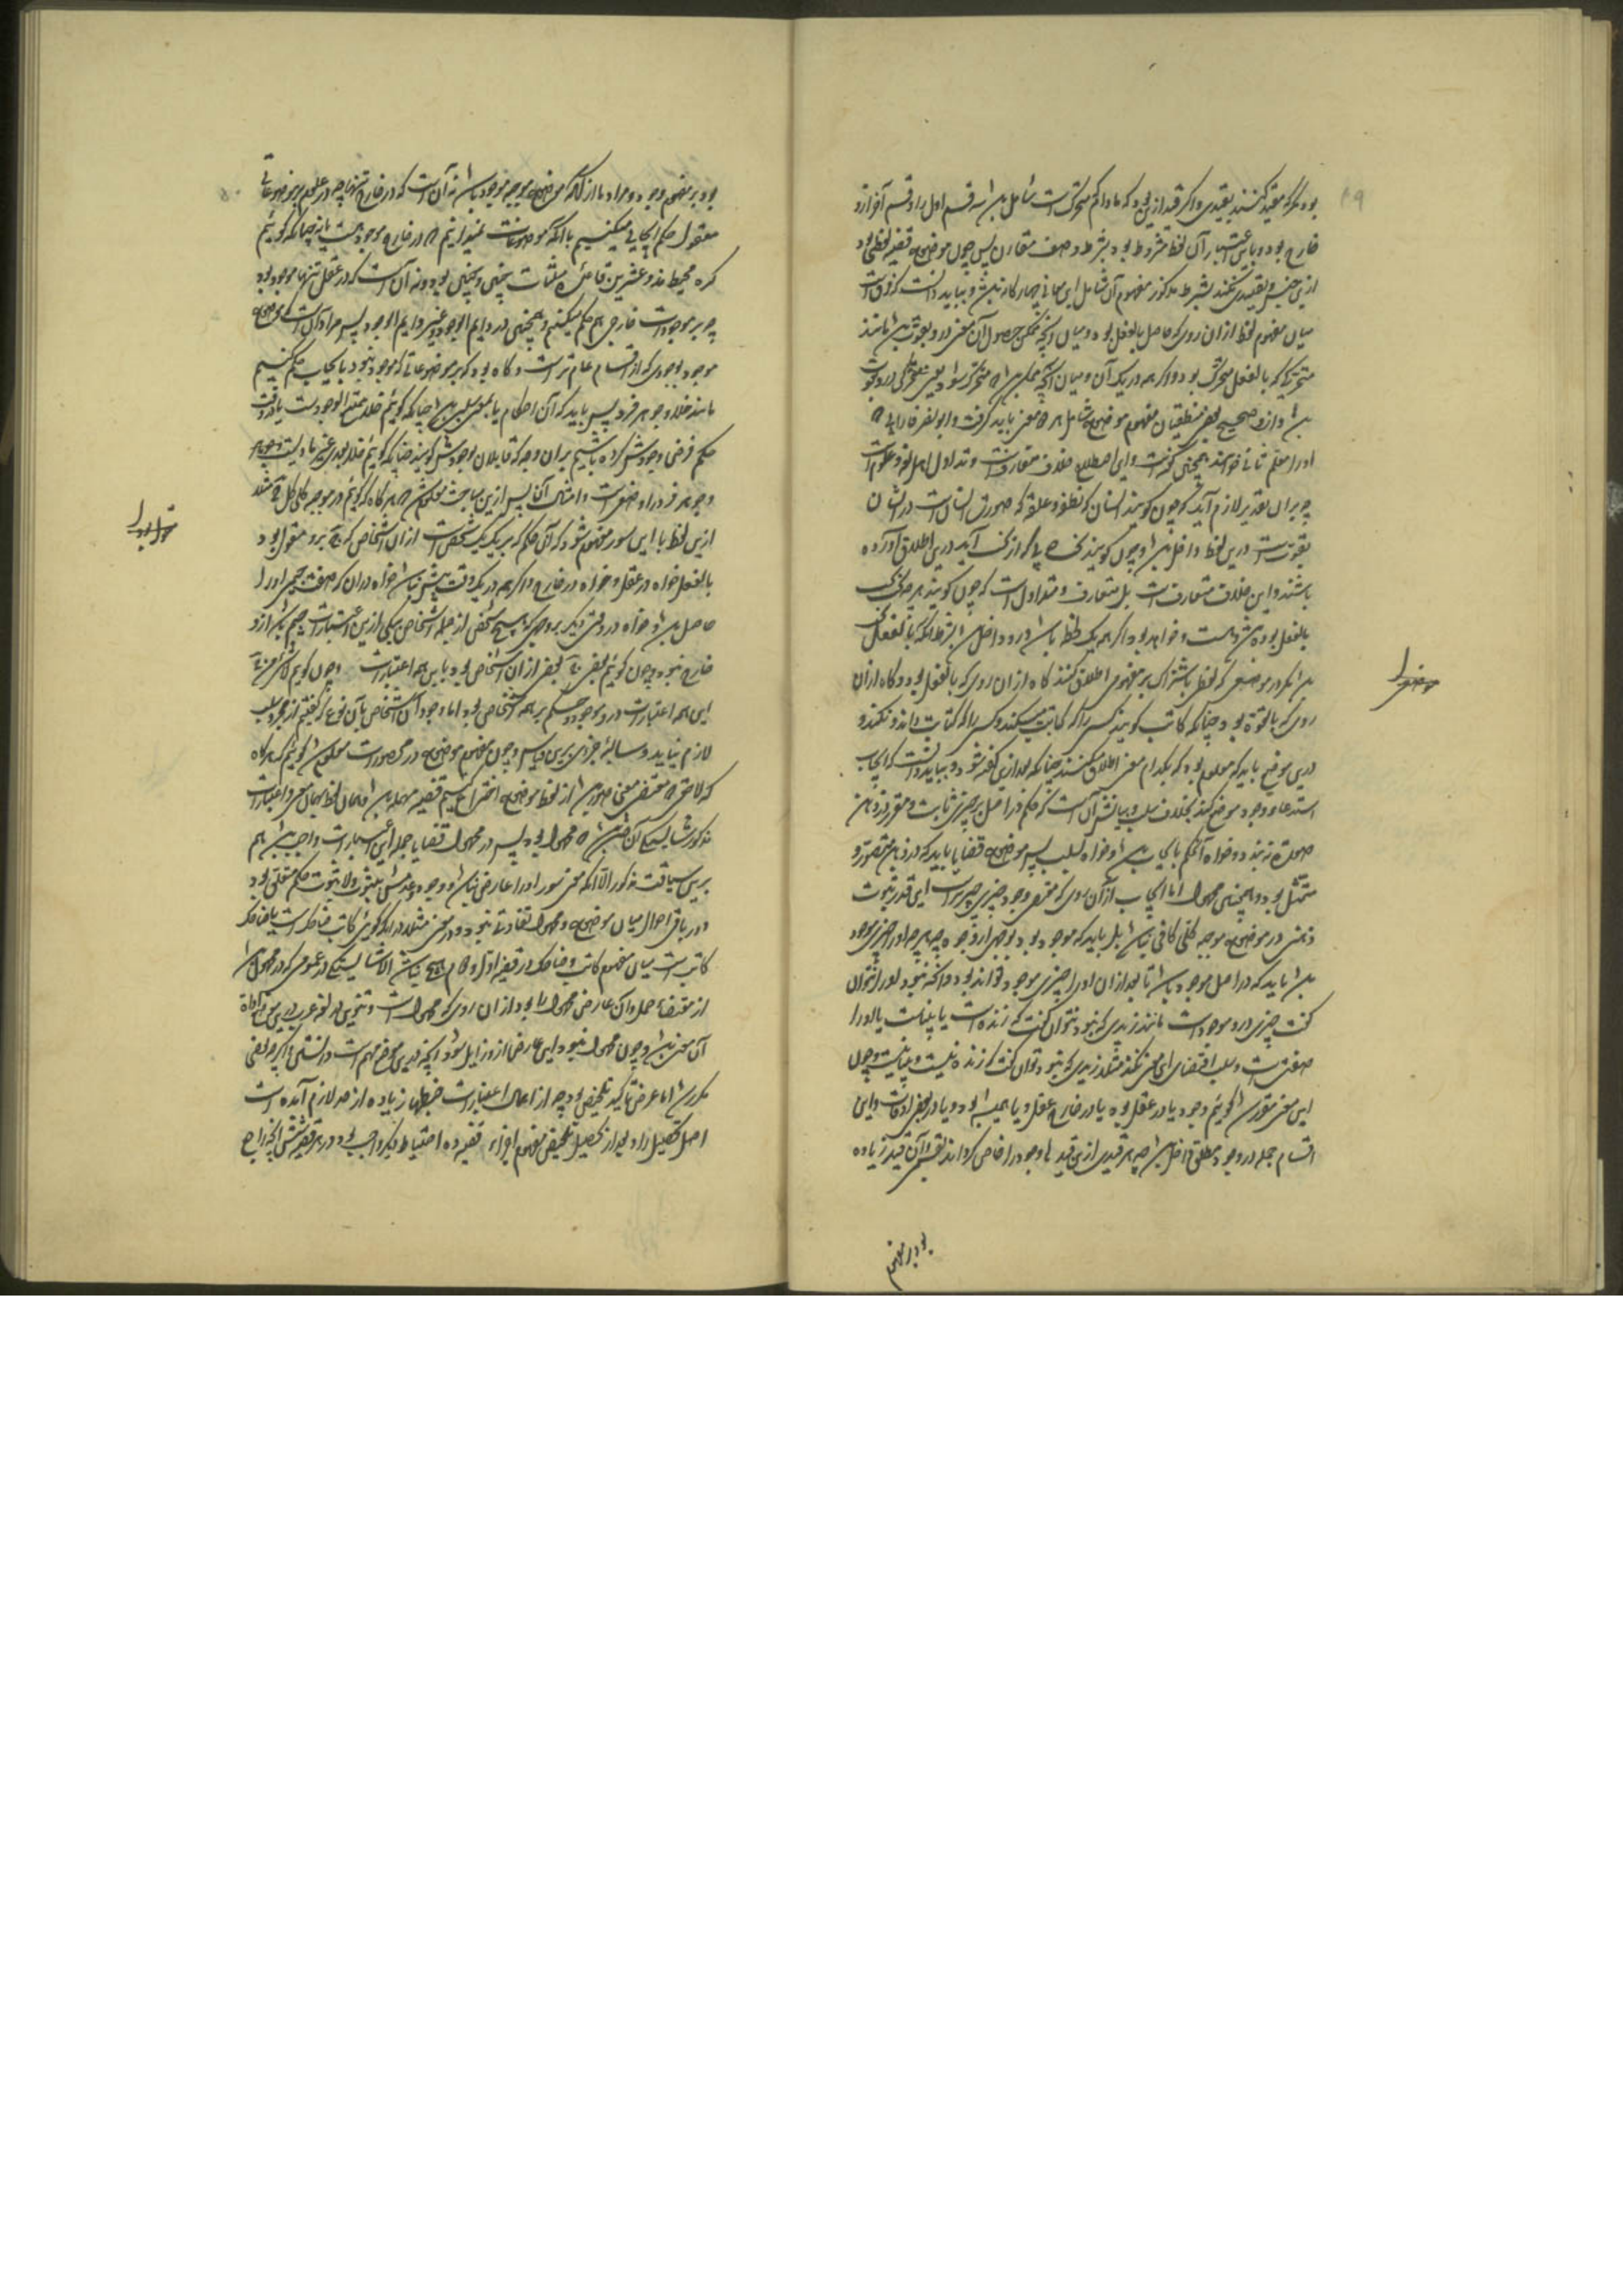 بود مگر که مقید کنند بقیدی و اگر قید ازین بود که مادام که متحرک است شامل بود سه قسم اول را و قسم آخر ازو
خارج بود و باعتبار آن لفظ مشروط بود بشرط وصف مقارن پس چون موضوع قضیه لفظی بود
ازین جنس و تقیید نکنند بشرط مذکور مفهوم آن شامل این معانی چهارگانه باشد و بباید دانست که فرق است
میان مفهوم لفظ از آن روی که حاصل بالفعل بود و میان آنچه ممکن بود حصول آن معنی درو بقوت باشد مانند
متحرکی که بالفعل متحرک بود و اگر همه در یک آن و میان آنچه ممکن باشد که متحرک شود یعنی متحرکی درو بقوت
باشد و از و صحیح بعضی منطقیان مفهوم موضوع شامل هر دو معنی باید گرفت و ابو نصر فارابی که
او را معلم ثانی خوانند همچنین گفته است و این اصطلاح خلاف متعارفست و تداول اهل لغو و علوم است
چه بران تقدیر لازم آید که چون گویند انسان که نطفه و علقه که صورت انسان است درایشان
بقوتست درین لفظ داخل باشد و چون گویند
باشند و این خلاف متعارف است بل متعارف و متداول است که چون گویند هر چه
بالفعل بوده است و هست و خواهد بود اگر همه یک لحظه باشد درو داخل باشد بشرط آنکه بالفعل
باشد مگر در موضعی که لفظ باشتراک بر مفهومی اطلاق کنند گاه از ان روی که بالفعل بود و گاه از ان
روی که بالقوه بود چنانکه کاتب گویند کسی را که کتابت میکند و کسی را که کتابت داند و نکند و
درین موضع باید که معلوم بود که بکدام معنی اطلاق میکنند چنانکه بعد ازین گفته شود و بباید دانست که ایجاب
استدعاء وجود موضوع کند بخلاف سلب و بیانش آن است که حکم در اصل بر چیزی ثابت و مقرر در ذهن
صورت نبندد و خواه آن حکم بایجاب باشد و خواه بسلب پس موضوع قضایا باید که در ذهن متصور و
متمثل بود و همچنین محمول اما ایجاب از آن روی که مقتضی وجود چیزی چیزی راست این قدر ثبوت
ذهنی در موضوع موجبه کلی کافی نباشد بل باید که موجود بود بوجهی از وجوه چه هر چه او را چیزی موجود
باشد باید که در اصل موجود باشد تا بعد از ان او را چیزی موجود تواند بود و آنکه نبود او را نتوان
گفت چیزی درو موجود است مانند زیدی که نبود نتوان گفت که زنده است یا بیناست یا او را
صفتی است و سلب اقتضای این معنی نکند مثلا زیدی که نبود توان گفت که زنده نیست و بینا نیست و چون
این معنی مقرر شد گوئیم وجود یا در عقل بود یا در خارج عقل و یا همیشه بود و یا در بعضی اوقات و این
اقسام جمله در وجود مطلق داخل باشد چه هر قیدی ازین قیدها وجود را خاص گرداند بقسمی و آن قید زیاده
بود بر مفهوم
بود بر مفهوم وجود و مراد ما از آنکه موضوع موجبه موجود باشد نه آن است که در خارج تنها چه در علوم بر موضوعاتی
معقول حکم ایجابی میکنیم با آنکه موضوعات نمیدانیم که در خارج موجود هست یا نه چنانکه گوئیم
کره محیط بذو عشرین قاعده مثلثات چنین و چنین بود و نه آن است که در عقل تنها موجود بود
چه بر موجودات خارجی هم حکم میکنیم و همچنین در دایم الوجود و غیر دایم الوجود پس مراد آن است که موضوع
موجود بوجودی که از اقسام عام تر است و گاه بود که بر موضوعاتی که موجود نبود بایجاب حکم کنیم
مانند خلا و جوهر فرد پس باید که آن احکام یا بمعنی سلب باشد چنانکه گوئیم خلا ممتنع الوجود است یا در وقت
حکم فرض وجودش کرده باشیم بر ان وجه که قایلان بوجودش گویند چنانکه گوئیم خلا بعدی غیر مادیست
و جوهر فرد را وضعی است و امثال آن پس ازین مباحث معلوم شد که هر گاه که گوئیم در موجبه کلی کل ج مثلا
ازین لفظ با این سور مفهوم شود که آن حکم که بر یک یک شخص است از ان اشخاص که ج برو مقول بود
بالفعل خواه در عقل و خواه در خارج و اگر همه در یک وقت بیش نباشد خواه در ان که صفت جیمی او را
حاصل باشد و خواه در وقتی دیگر بر وجهی که هیچ شخصی از جمله اشخاص بیکی ازین اعتبارات جیم باشد ازو
خارج نبود و چون گوئیم بعضی ج بعضی از ان اشخاص بود باین همه اعتبارات و چون گوئیم لا شئ من ج
این همه اعتبارات درو موجود و حکم بر همه اشخاص بود اما وجود آن اشخاص بآن نوع که گفتیم از مجرد سلب
لازم نیاید و سالبه جزوی برین قیاس و چون مفهوم موضوع در محصورات معلوم شد گوئیم که هر گاه
که لاحق که مقتضی معنی حصر باشد از لفظ موضوع انتزاع کنیم قضیه مهمله باشد
مذکور شایستگی آن باشد که محمول بود پس در محمول قضایا جمله این اعتبارات واجب باشد هم
برین سیاقت مذکور الا آنکه معنی سور او را عارض نباشد و وجود و عدمش بثبوت و لا ثبوت حکم متعلق بود
و در باقی احوال میان موضوع و محمول تفاوت نبود و در معنی مثلا در آنکه گوئی کاتب ضاحک است یا ضاحک
کاتب است میان مفهوم کاتب و ضاحک در قضیه اول و دوم هیچ تباین الا شایستگی در عمومی که در محمول باشد
از مقتضاء حمل و آن عارض محمول را بود از ان روی که محمول است و تنوین در لغت عرب درین موضع اداة
آن معنی باشد و چون محمول نبود این عارض از و زایل شود اینچه درین موضع مهم است دانستنی و اگر چه بعضی
مکرر شد اما غرض تاکید تلخیص بود چه از اهمال اعتبارات خبطها زیاده از حد لازم آمده است
اصل تحصیل را و بعد از تحصیل و تلخیص مفهوم اجزاء قضیه ده احتیاط دیگر واجب بود و در هر قضیه شش آنچه راجع